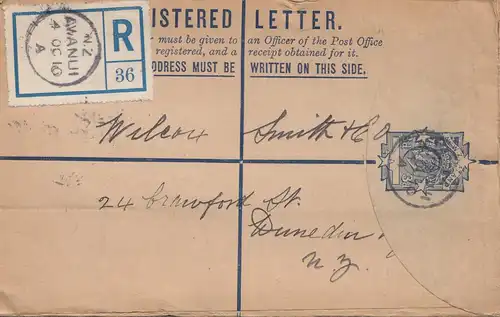 REGISTERED LETTER.
must be given to an Officer of the Post Office
registered, and a receipt obtained for it.
ADDRESS MUST BE WRITTEN ON THIS SIDE.
N.Z
AWANUI
4 OC 10
A
R
36
Wilcox Smith & Co
24 Crawford St.
Dunedin
N.Z.